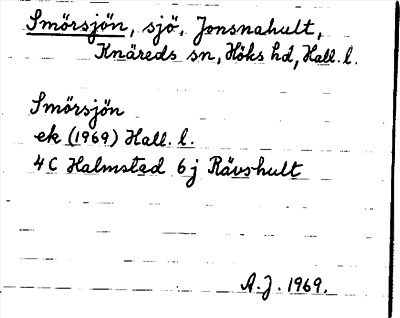 Smörsjön, sjö, Jonsnahult,
Knäreds sn, Höks hd, Hall. l.
Smörsjön
ek (1969) Hall. l.
4 C Halmstad 6 j Rävshult
A.J. 1969.